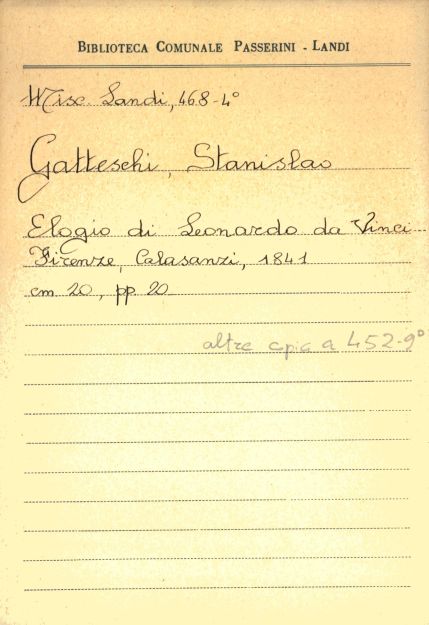 BIBLIOTECA COMUNALE PASSERINI - LANDI
Misc. Landi, 468-4°
Gatteschi, Stanislao
Elogio di Leonardo da Vinci
Firenze, Calasanzi, 1841
cm 20, pp. 20
altre copie a 452-9°